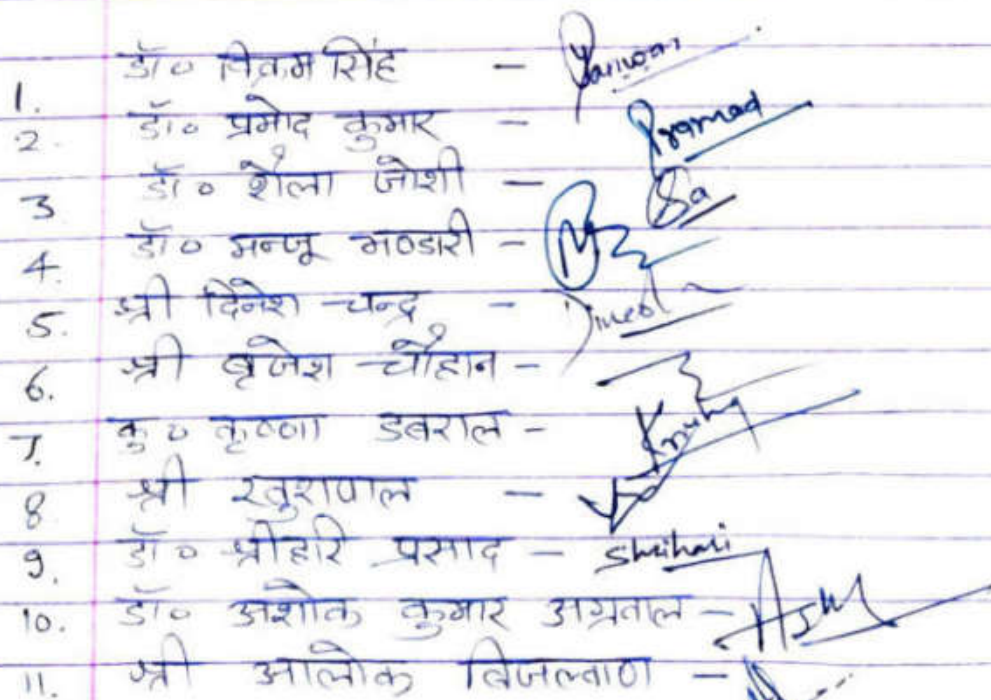 1. डॉ० विक्रम सिंह -
2. डॉ० प्रमोद कुमार - Pramod
3. डॉ० शैला जोशी -
4. डॉ० मन्जू भण्डारी -
5. श्री दिनेश चन्द्र - Dinesh
6. श्री बृजेश चौहान -
7. कु० कृष्णा डबराल -
8. श्री खुशपाल -
9. डॉ० श्रीहरि प्रसाद - Shrihari
10. डॉ० अशोक कुमार अग्रवाल -
11. श्री आलोक बिजल्वाण -